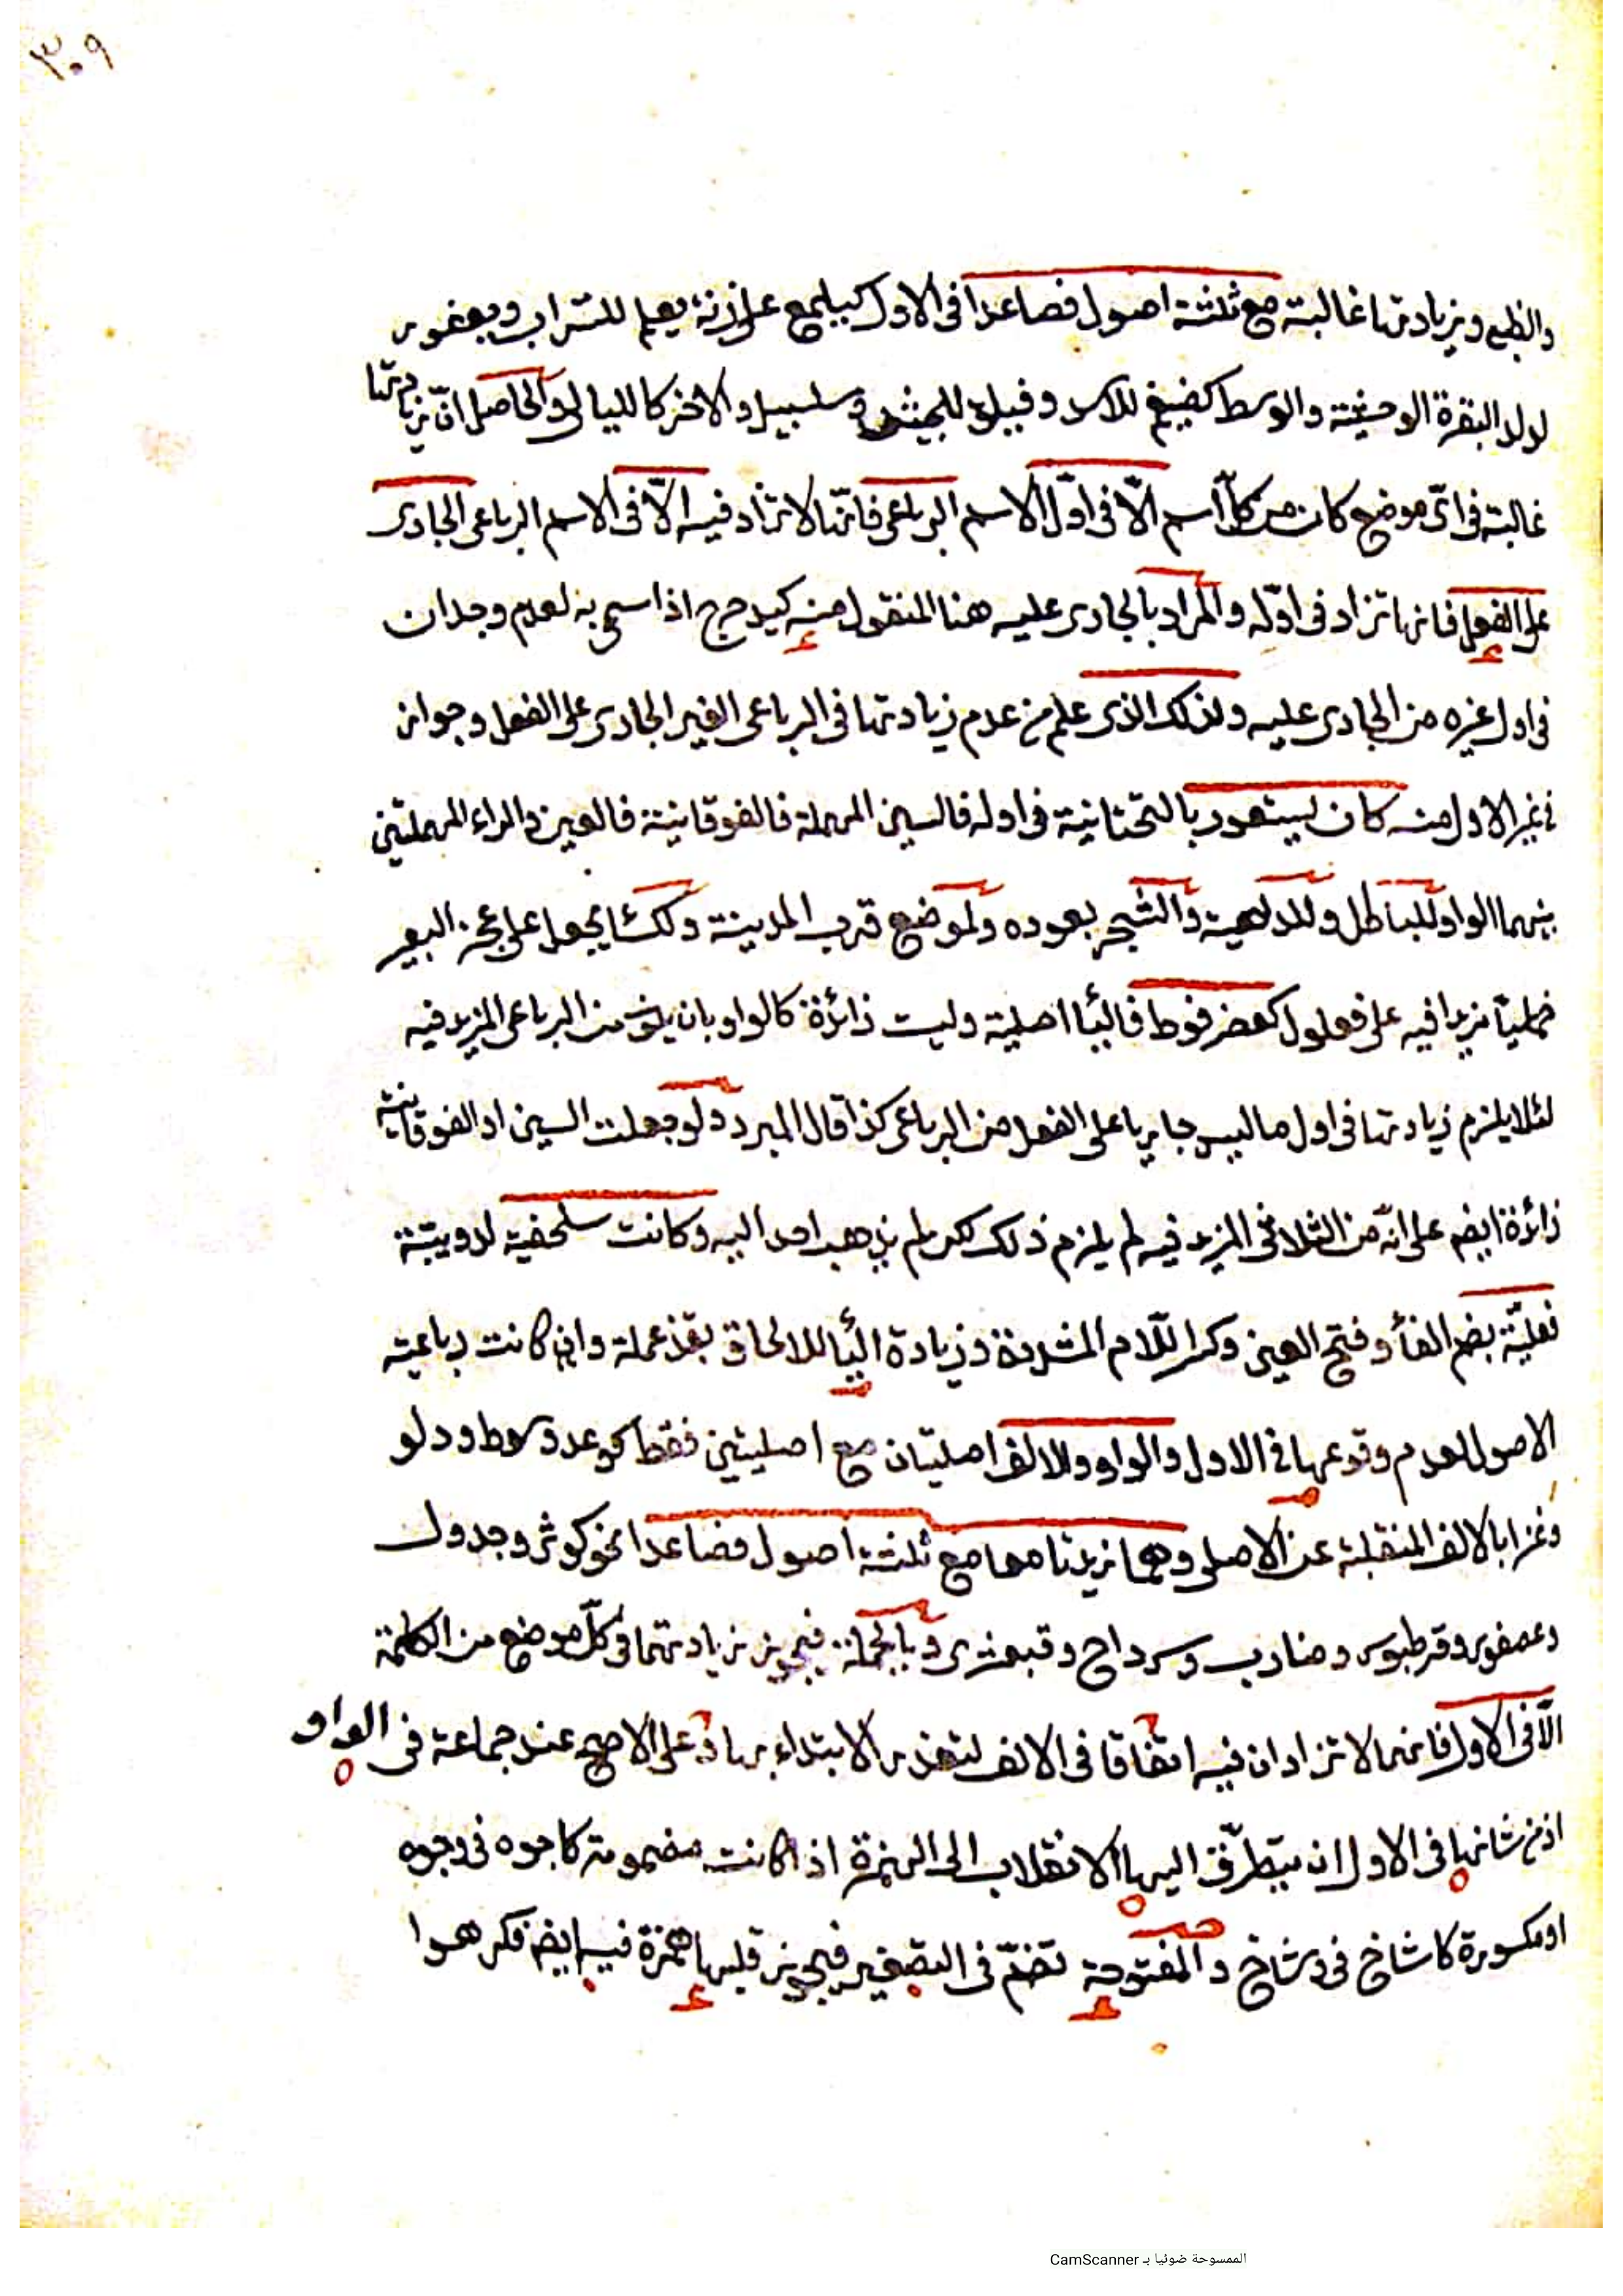 ٣٠٩
وزيادتها غالبة مع ثلثة اصول فصاعدا فى الاول كيلمع على زنة يعلم للسراب ويعفور
لولد البقرة الوحشية والوسط كضيغم للاسد وسلسبيل والاخر كالليالى والحاصل انّ زيادتها
غالبة فى اىّ موضع كان من كلّ اسم الّا فى اوّل الاسم الرباعى فانّها لا تزاد فيه الّا فى الاسم الرباعى الجارى
على الفعل فانها تزاد فى اوّله والمراد بالجارى عليه هنا المنقول منه كيدحرج اذا سمى به لعدم وجدان
فى اول غيره من الجارى عليه ولذلك الذى علم من عدم زيادتها فى الرباعى الغير الجارى على الفعل وجواز
فى غير الاول منه كان يستعور بالتحتانية فى اوله فالسين المهملة فالفوقانية فالعين والراء المهملتين
بينهما الواو للباطل وللداهية والشجر بعوده ولموضع قرب المدينة ولكساء يجعل على عجز البعير
خماسيا مزيدا فيه على فعلول كعضرفوط فاليأ اصلية وليست زائدة كالواو بان يكون من الرباعى المزيد فيه
لئلا يلزم زيادتها فى اول ما ليس جاريا على الفعل من الرباعى كذا قال المبرد ولو جعلت السين او الفوقانية
زائدة ايضم على انّه من الثلاثى المزيد فيه لم يلزم ذلك لكن لم يذهب احد اليه وكانت سلحفية لدويبّة
فعليّة بضم الفأ وفتح العين وكسر اللّام وزيادة اليأ للالحاق بقذعملة وان كانت رباعية
الاصول لعدم وقوعها فى الاول والواو والالف اصليّتان مع اصليتين فقط كوعد وسوط ودلو
وغزا بالالف المنقلبة عن الاصلى وهما زيدتا معا مع ثلثة اصول فصاعدا نحو كوثر وجدول
وعصفور وقرطبوس وضارب وسرداح وقبعثرى وبالجملة فيجوز زيادتهما فى كلّ موضع من الكلمة
الّا فى الاول فانهما لا تزادان فيه اتفاقا فى الالف لتعذر الابتداء بها وعلى الاصح عند جماعة فى الواو
اذ من شانها فى الاول ان يتطرّق اليها الانقلاب الى الهمزة اذا كانت مضمومة كاجوه فى وجوه
او مكسورة كاشاح فى وشاح والمفتوحة تضمّ فى التصغير فيجوز قلبها همزة فيه ايضم فكرهوا
الممسوحة ضوئيا بـ CamScanner